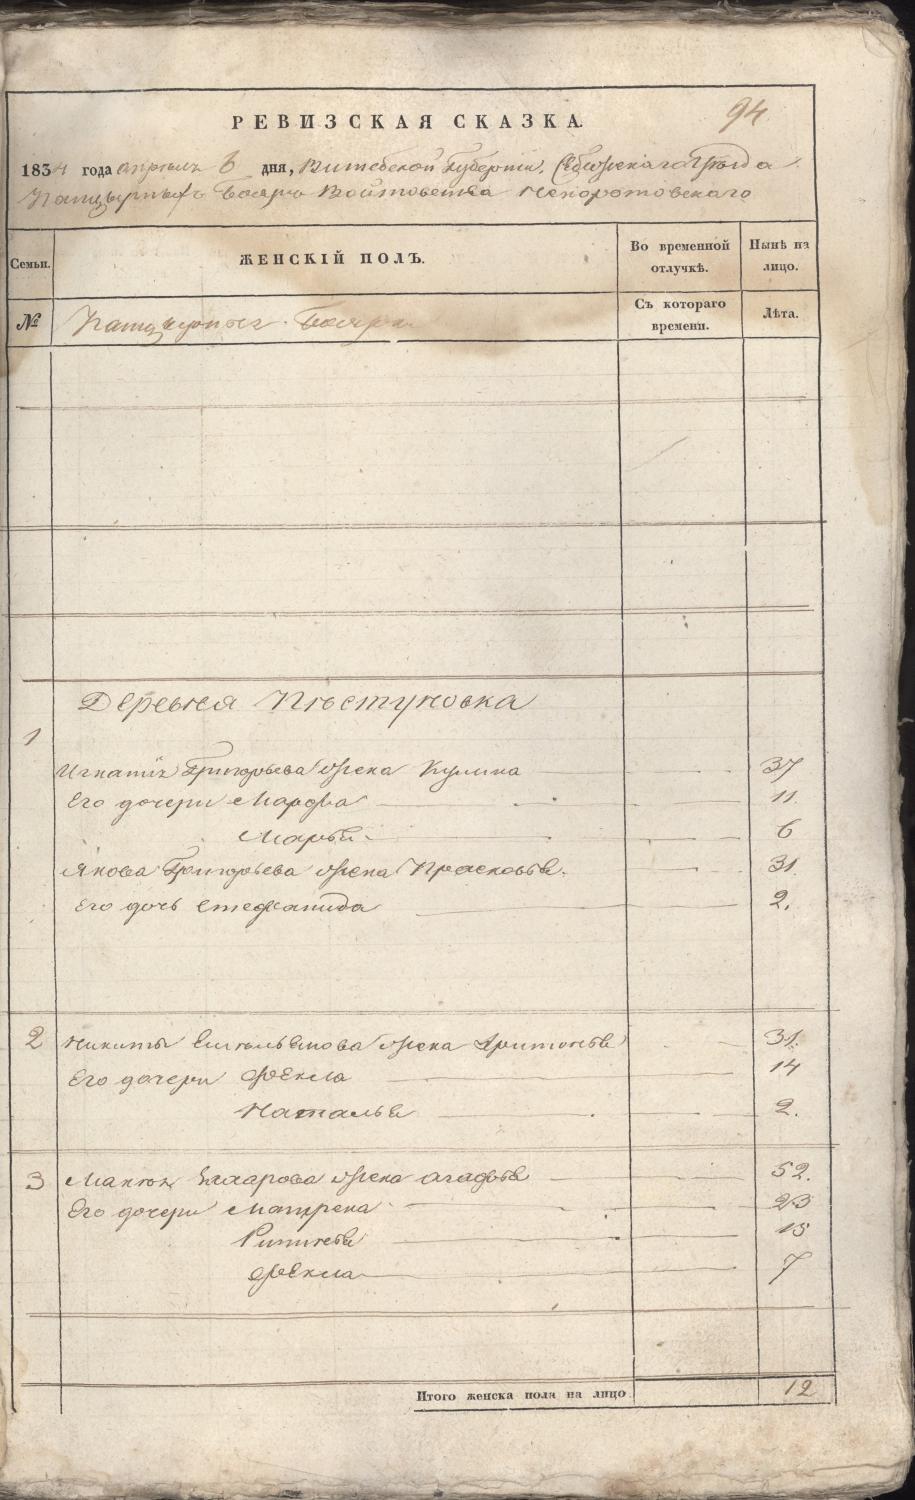 94
РЕВИЗСКАЯ СКАЗКА.
1834 года апреля 6 дня, Витебской Губернии, Себежскаго Уезда
Панцырныхъ бояръ Войтовства Непоротовскаго
Семьи.
ЖЕНСКІЙ ПОЛЪ.
Во временной отлучкѣ.
Нынѣ на лицо.
№
Панцырныхъ Бояръ
Съ котораго времени.
Лѣта.
Деревня Пастуховка
1
Игнатія Григорьева жена Кулина 37
Его дочери Марфа 11
Марья 6
Якова Григорьева жена Прасковья 31
Его дочь Стефанида 2.
2 Никиты Емельянова жена 31.
Его дочери Фекла 14
Наталья 2.
3 Захарова жена Агафья 52.
Его дочери Матрена 23
15
Фекла 7
Итого женска пола на лицо 12